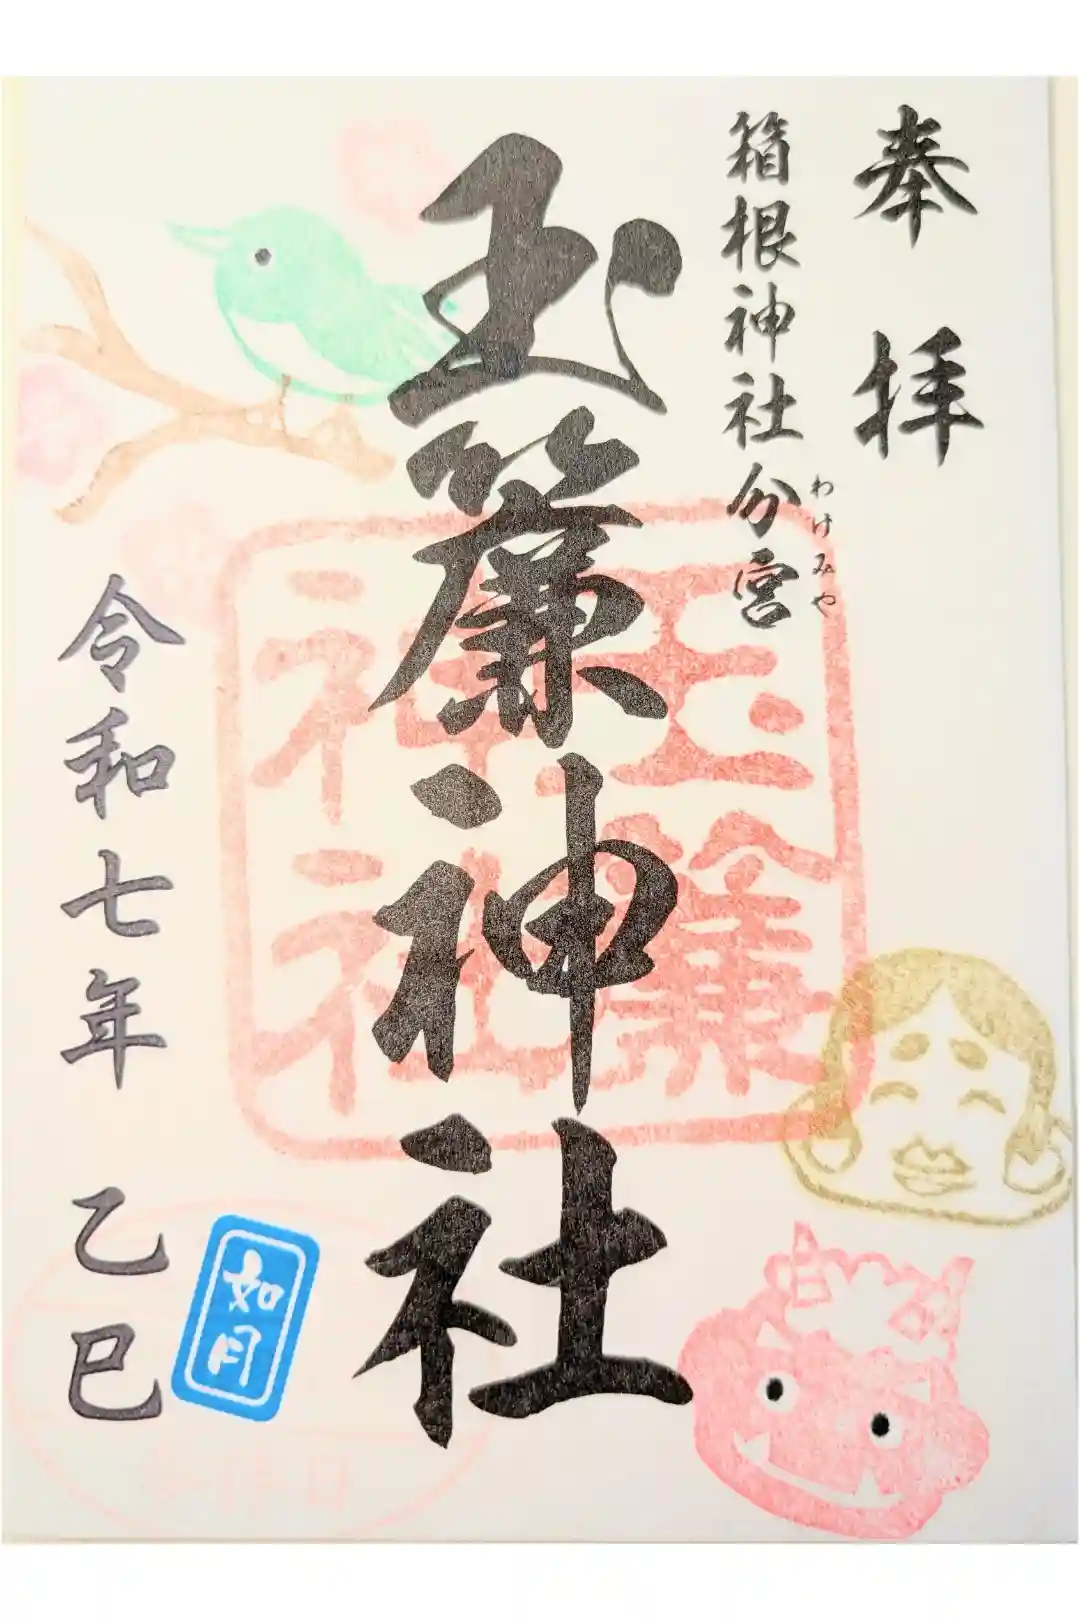 奉拝
箱根神社分宮
わけみや
玉簾神社
玉簾
神社
令和七年 乙巳
如月